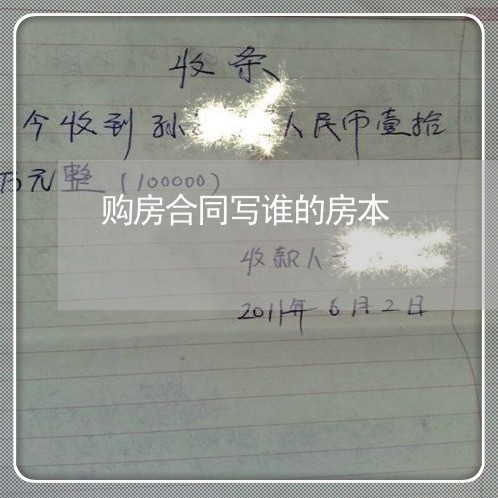 收条
今收到孙 人民币壹拾
万元整(100000)
购房合同写谁的房本
收款人
2011年6月2日